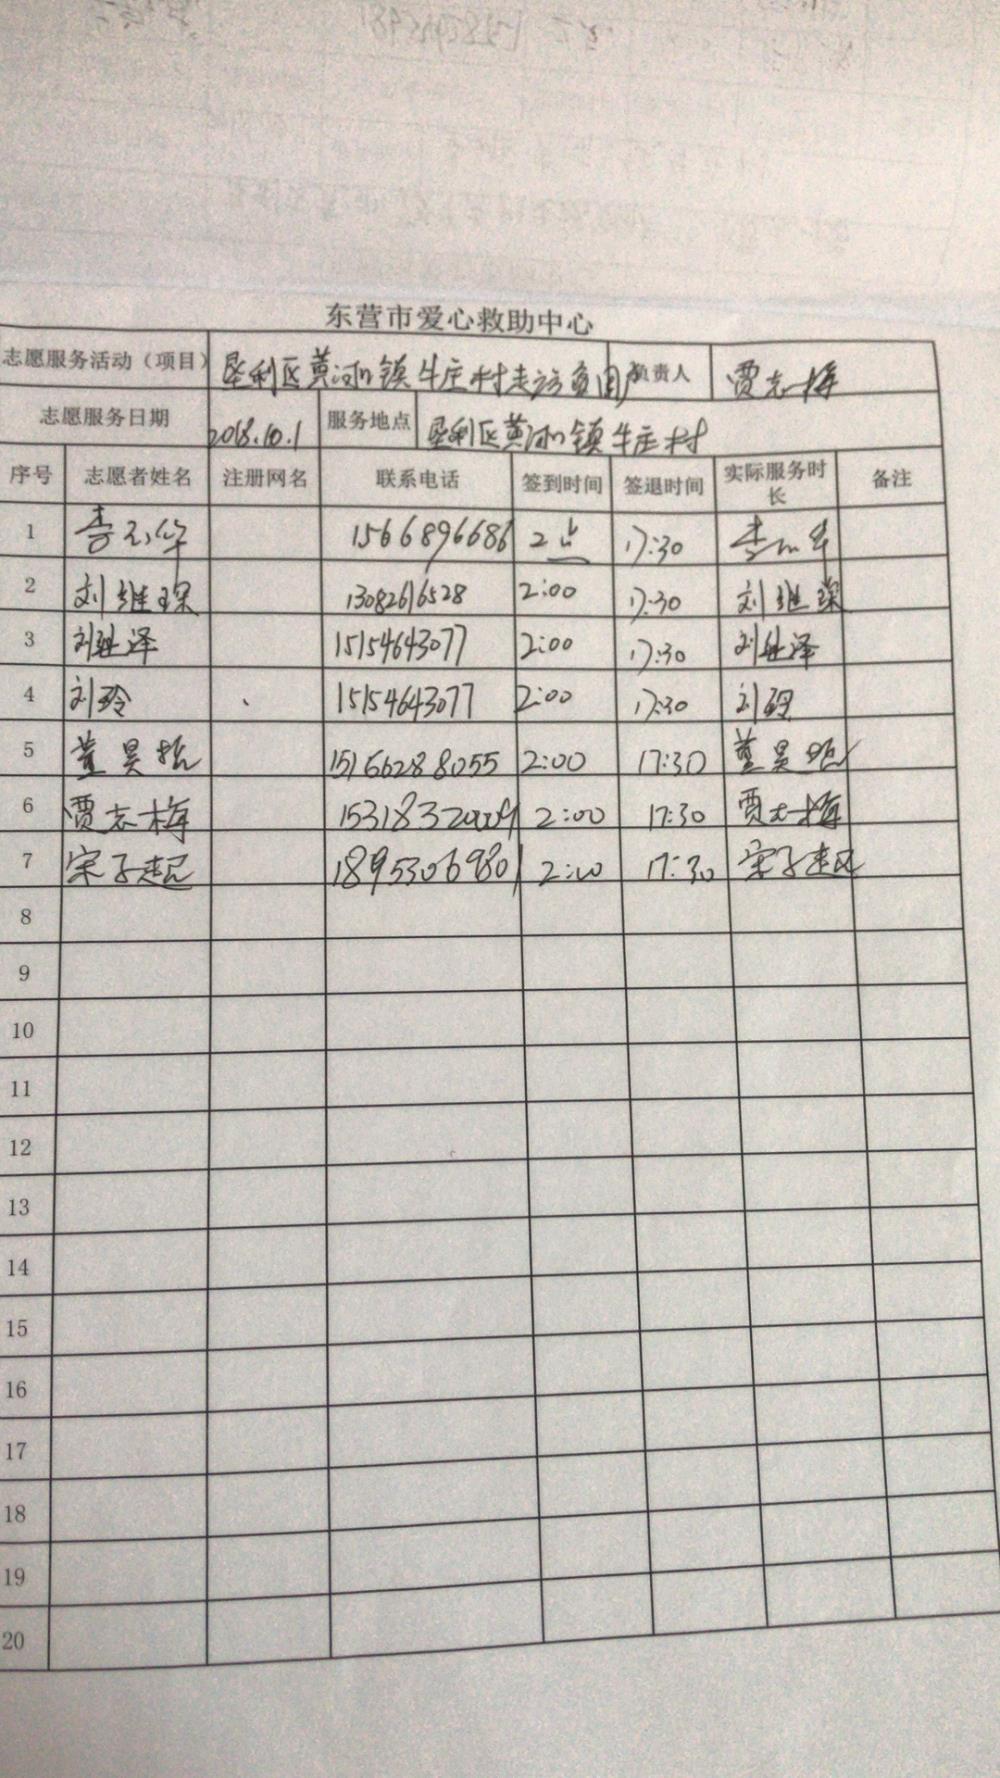 东营市爱心救助中心
志愿服务活动（项目） 垦利区黄河口镇牛庄村走访贫困户 负责人 贾志梅
志愿服务日期 2018.10.1 服务地点 垦利区黄河口镇牛庄村
序号 志愿者姓名 注册网名 联系电话 签到时间 签退时间 实际服务时长 备注
1 1566896686 2点 17:30
2 刘继琛 13082616528 2:00 17:30 刘继琛
3 刘继泽 15154643077 2:00 17:30 刘继泽
4 刘玲 15154643077 2:00 17:30 刘玲
5 董昊 15166288055 2:00 17:30 董昊
6 贾志梅 2:00 17:30 贾志梅
7 宋子起 18953069801 2:00 17:30 宋子起
8
9
10
11
12
13
14
15
16
17
18
19
20